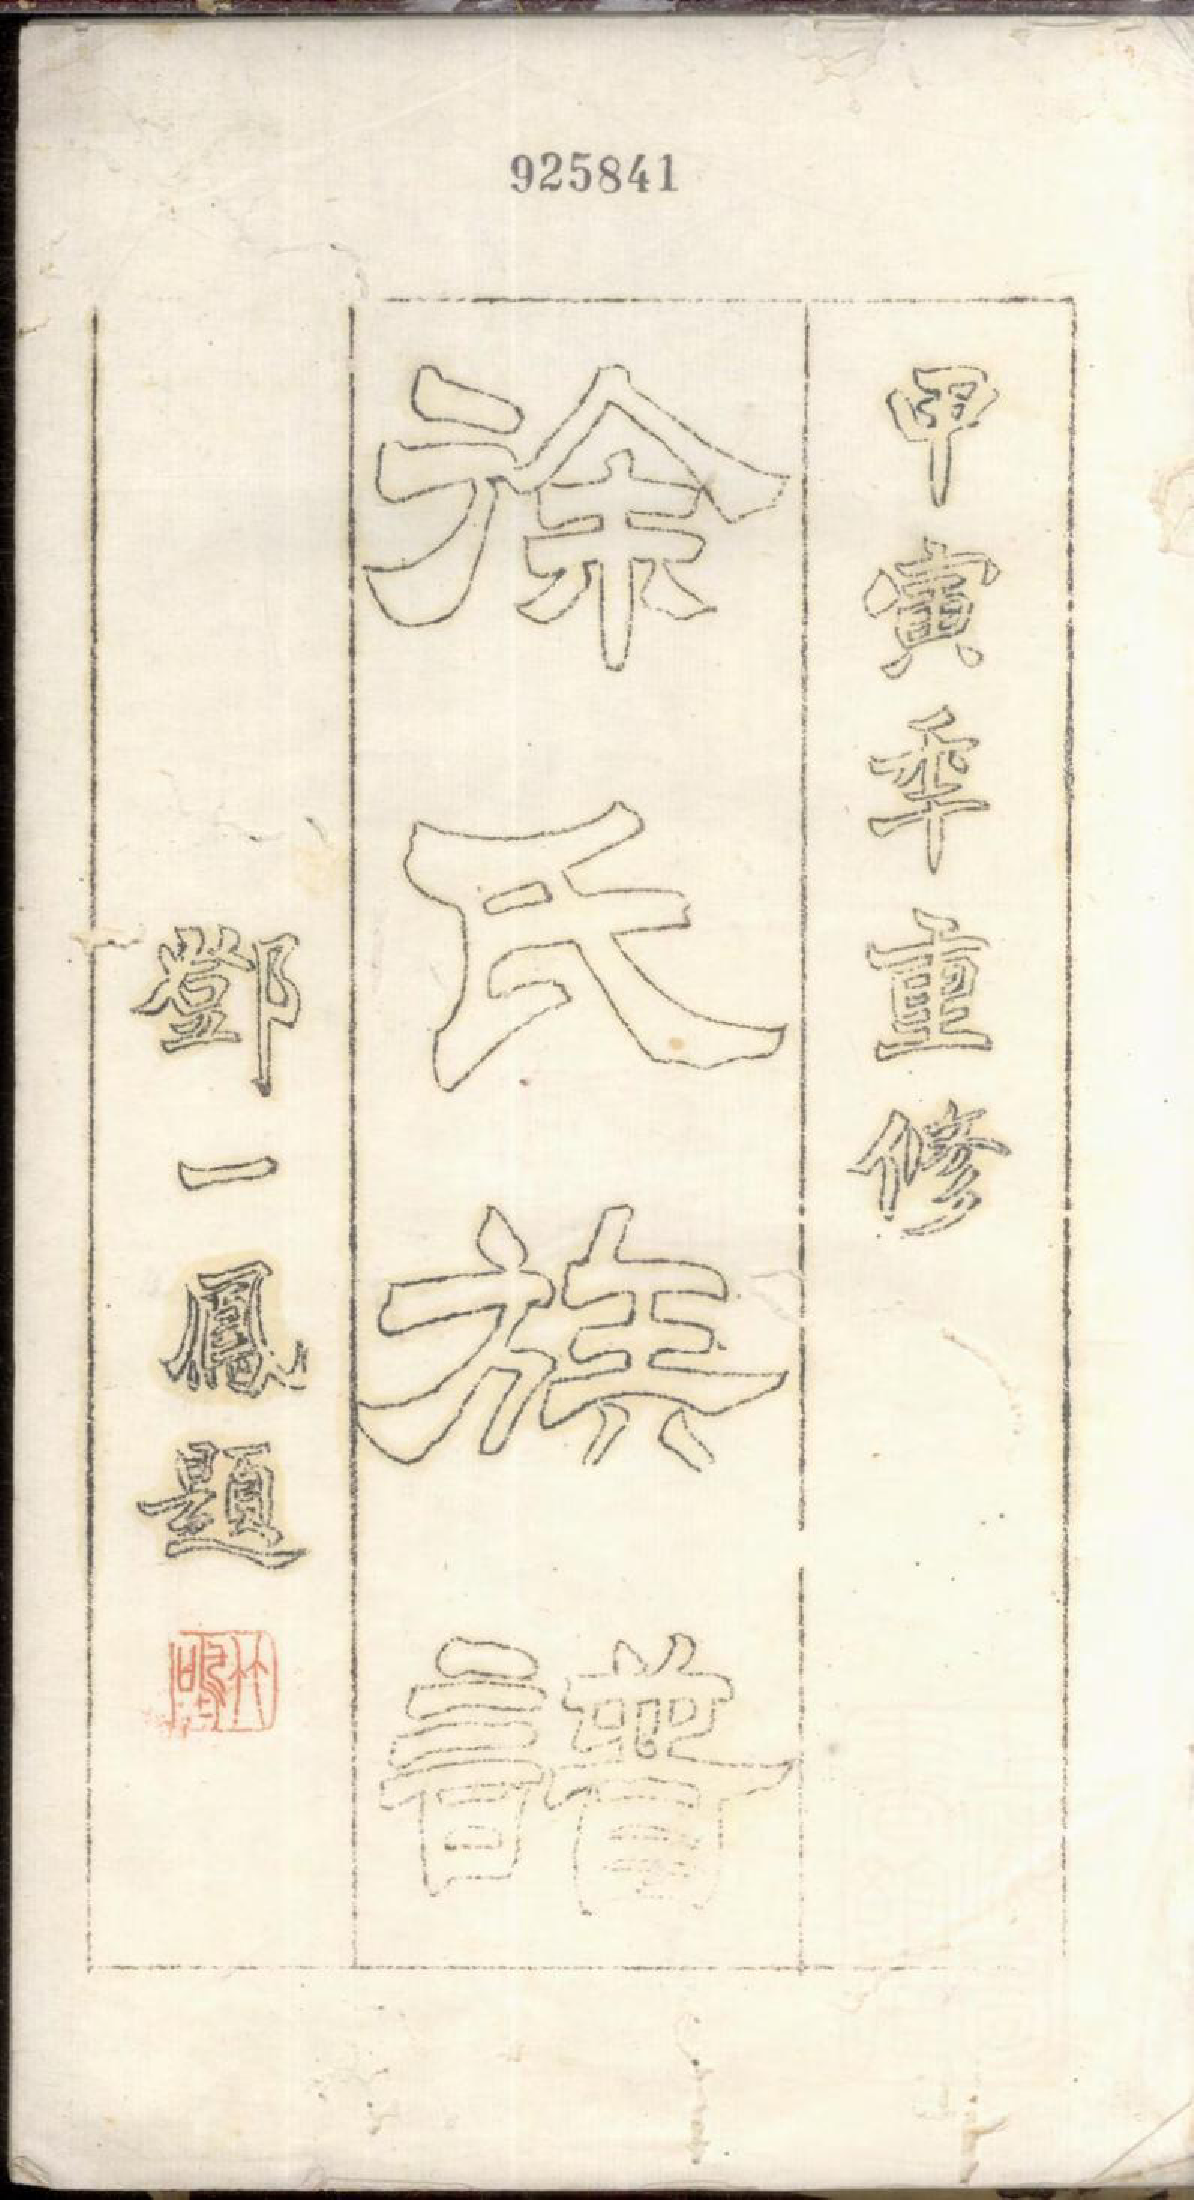 925841
甲寅年重修
徐氏族譜
鄧一鳳題